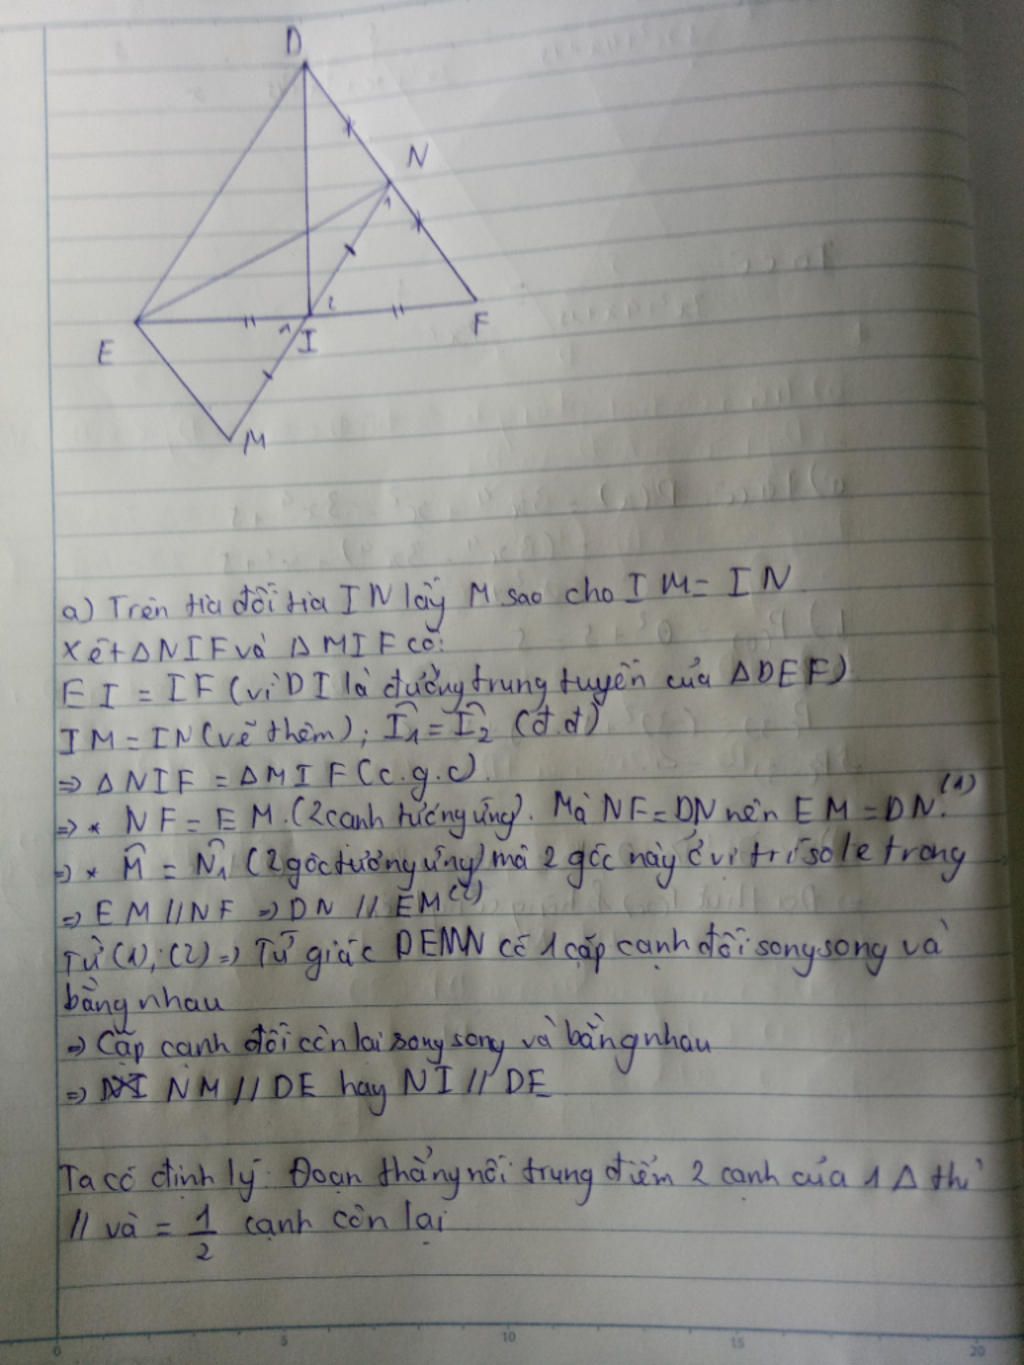 D
N
1
2
E
1
I
F
M
a) Trên tia đối tia IN lấy M sao cho IM = IN
Xét ΔNIF và ΔMIF có:
EI = IF (vì DI là đường trung tuyến của ΔDEF)
IM = IN (vẽ thêm); Î₁ = Î₂ (đ.đ)
=> ΔNIF = ΔMIF (c.g.c).
=> * NF = EM. (2 cạnh tương ứng). Mà NF = DN nên EM = DN. (1)
=> * M̂ = N̂₁ (2 góc tương ứng) mà 2 góc này ở vị trí so le trong
=> EM // NF => DN // EM (2)
Từ (1); (2) => Tứ giác DEMN có 1 cặp cạnh đối song song và
bằng nhau
=> Cặp cạnh đối còn lại song song và bằng nhau
=> NM // DE hay NI // DE
Ta có định lý: Đoạn thẳng nối trung điểm 2 cạnh của 1 Δ thì
// và = 1/2 cạnh còn lại
0 5 10 15 20